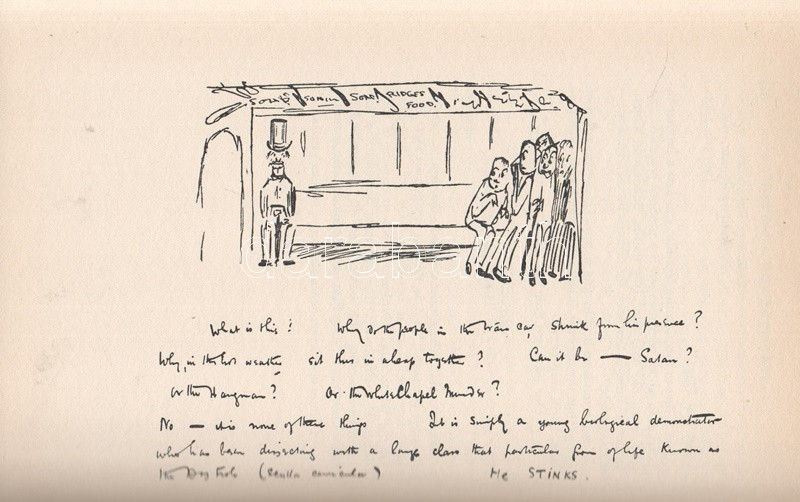 SOAPS SOAP BRIDGES
FOOD
What is this? Why do the people in the tram car shrink from his presence?
Why, in the hot weather sit thus in a heap together? Can it be — Satan?
Or the Hangman? Or the White Chapel Murder?
No — it is none of these things It is simply a young biological demonstrator
who has been dissecting with a large class that particular form of life known as
the Dog Fish (Scylla canicula) He STINKS.
darabanth